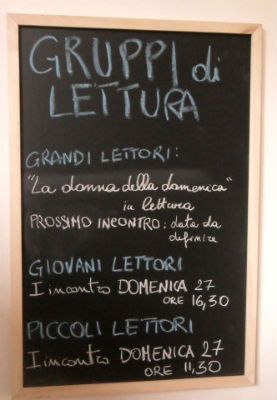 GRUPPI di
LETTURA
GRANDI LETTORI:
"La donna della domenica"
in lettura
PROSSIMO INCONTRO: data da
definire
GIOVANI LETTORI
I incontro DOMENICA 27
ORE 16,30
PICCOLI LETTORI
I incontro DOMENICA 27
ORE 11,30